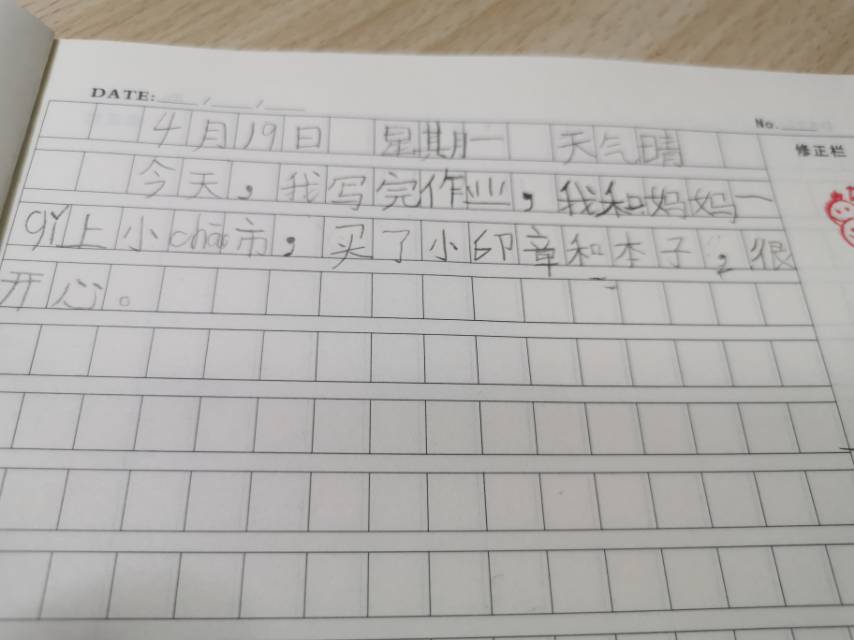 DATE: / /
No.
4月19日 星期一 天气晴
修正栏
今天，我写完作业，我和妈妈一
qǐ上小chāo市，买了小印章和本子，很
开心。